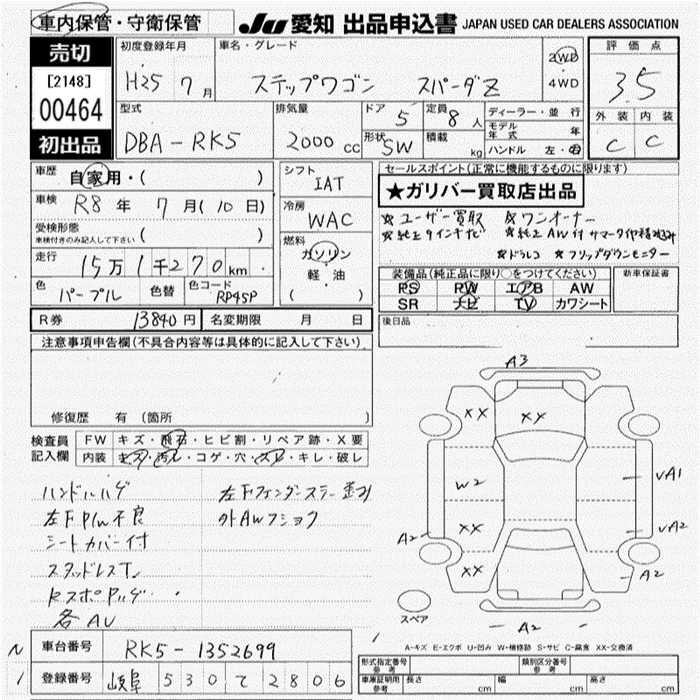 車内保管・守衛保管
JU 愛知 出品申込書 JAPAN USED CAR DEALERS ASSOCIATION
売切
[2148]
00464
初出品
初度登録年月
H25 7月
車名・グレード
ステップワゴン スパーダZ
2WD
・
4WD
評価点
3.5
外装 内装
C C
型式
DBA-RK5
排気量
2000 CC
ドア 5
定員 8人
形状 SW
積載 kg
ディーラー・並行
モデル年式 年
ハンドル 左・右
車歴
自家用・( )
車検
R8年 7月(10日)
受検形態
車検付きのみ記入して下さい( )
走行
15万1千270km
色
パープル
色替
色コード
RP45P
シフト
IAT
冷房
WAC
燃料
ガソリン
軽・油
( )
セールスポイント(正常に機能するものに限ります)
★ガリバー買取店出品
☆ユーザー買取 ☆ワンオーナー
☆純正9インチナビ ☆純正AW付サマータイヤ積込み
☆ドラレコ ☆フリップダウンモニター
装備品(純正品に限り○をつけてください)
PS PW エアB AW
SR ナビ TV カワシート
新車保証書
後日品
R券 13840円
名変期限 月 日
注意事項申告欄(不具合内容等は具体的に記入して下さい)
修復歴 有(箇所 )
検査員記入欄
FW キズ・飛石・ヒビ割・リペア跡・X要
内装 キズ・汚れ・コゲ・穴・スレ・キレ・破レ
ハンドルハゲ
左FP/W不良
シートカバー付
スタッドレスT
RスポPハゲ
各AU
左Fフェンダーステー歪み
外AWフショク
A3
XX
XX
W2
XX
XX
A2
VA1
VA2
A2
A2
スペア
A-キズ E-エクボ U-凹み W-補修跡 S-サビ C-腐食 XX-交換済
車台番号 RK5-1352699
登録番号 岐阜 530 て 2806
形式指定番号 参考
類別区分番号 参考
車庫証明用 参考 長さ cm 幅 cm 高さ cm